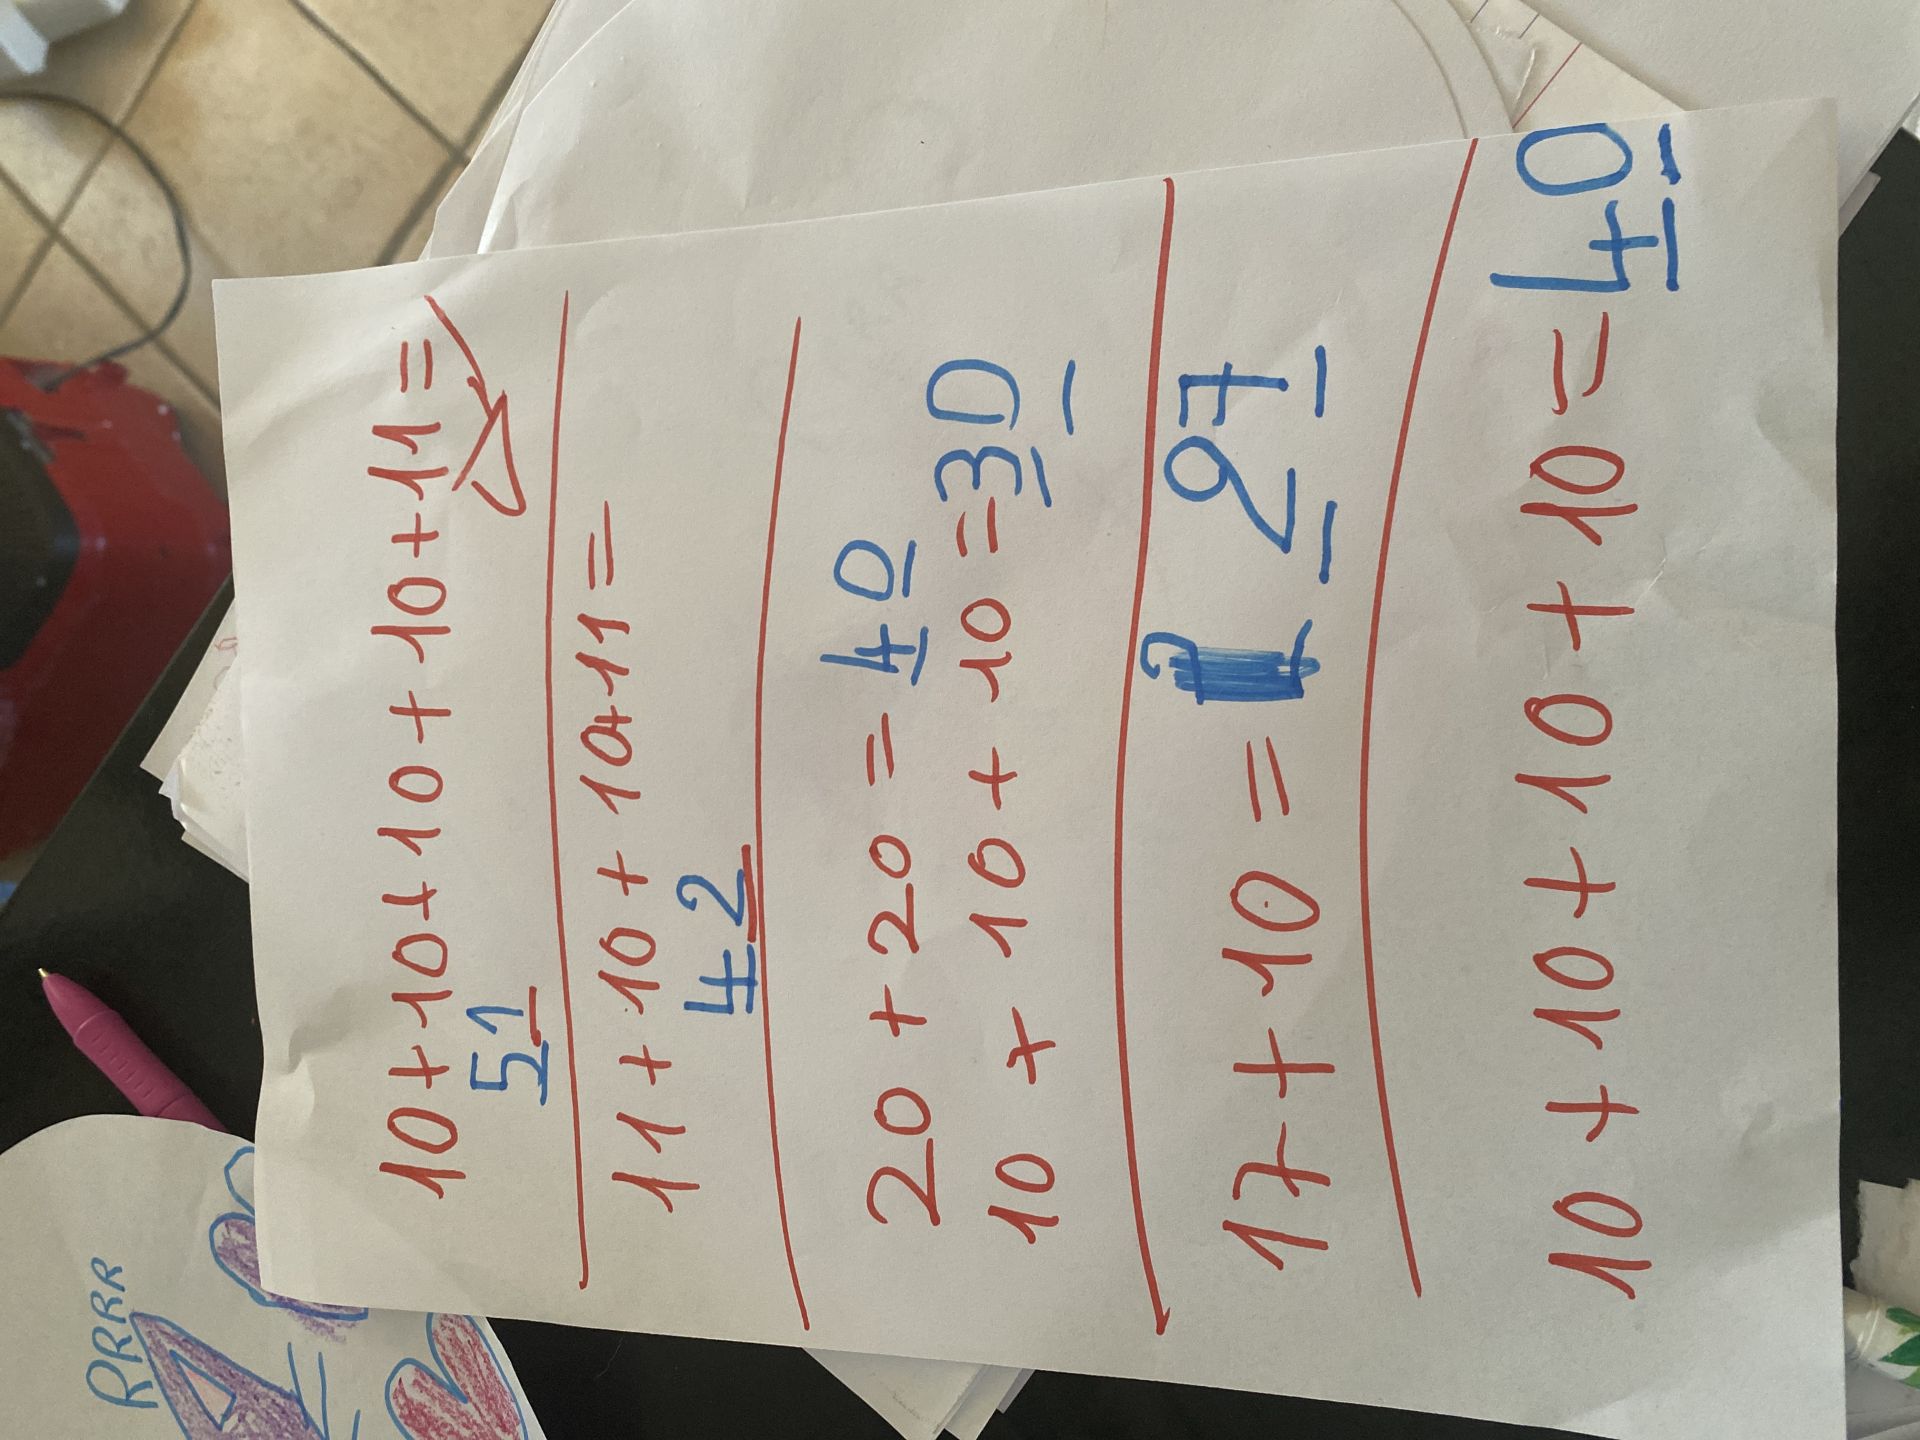 10+10+10+10+11=
51
11+10+10+11=
42
20+20=40
10+10+10=30
17+10= 27
10+10+10+10=40
RRRR